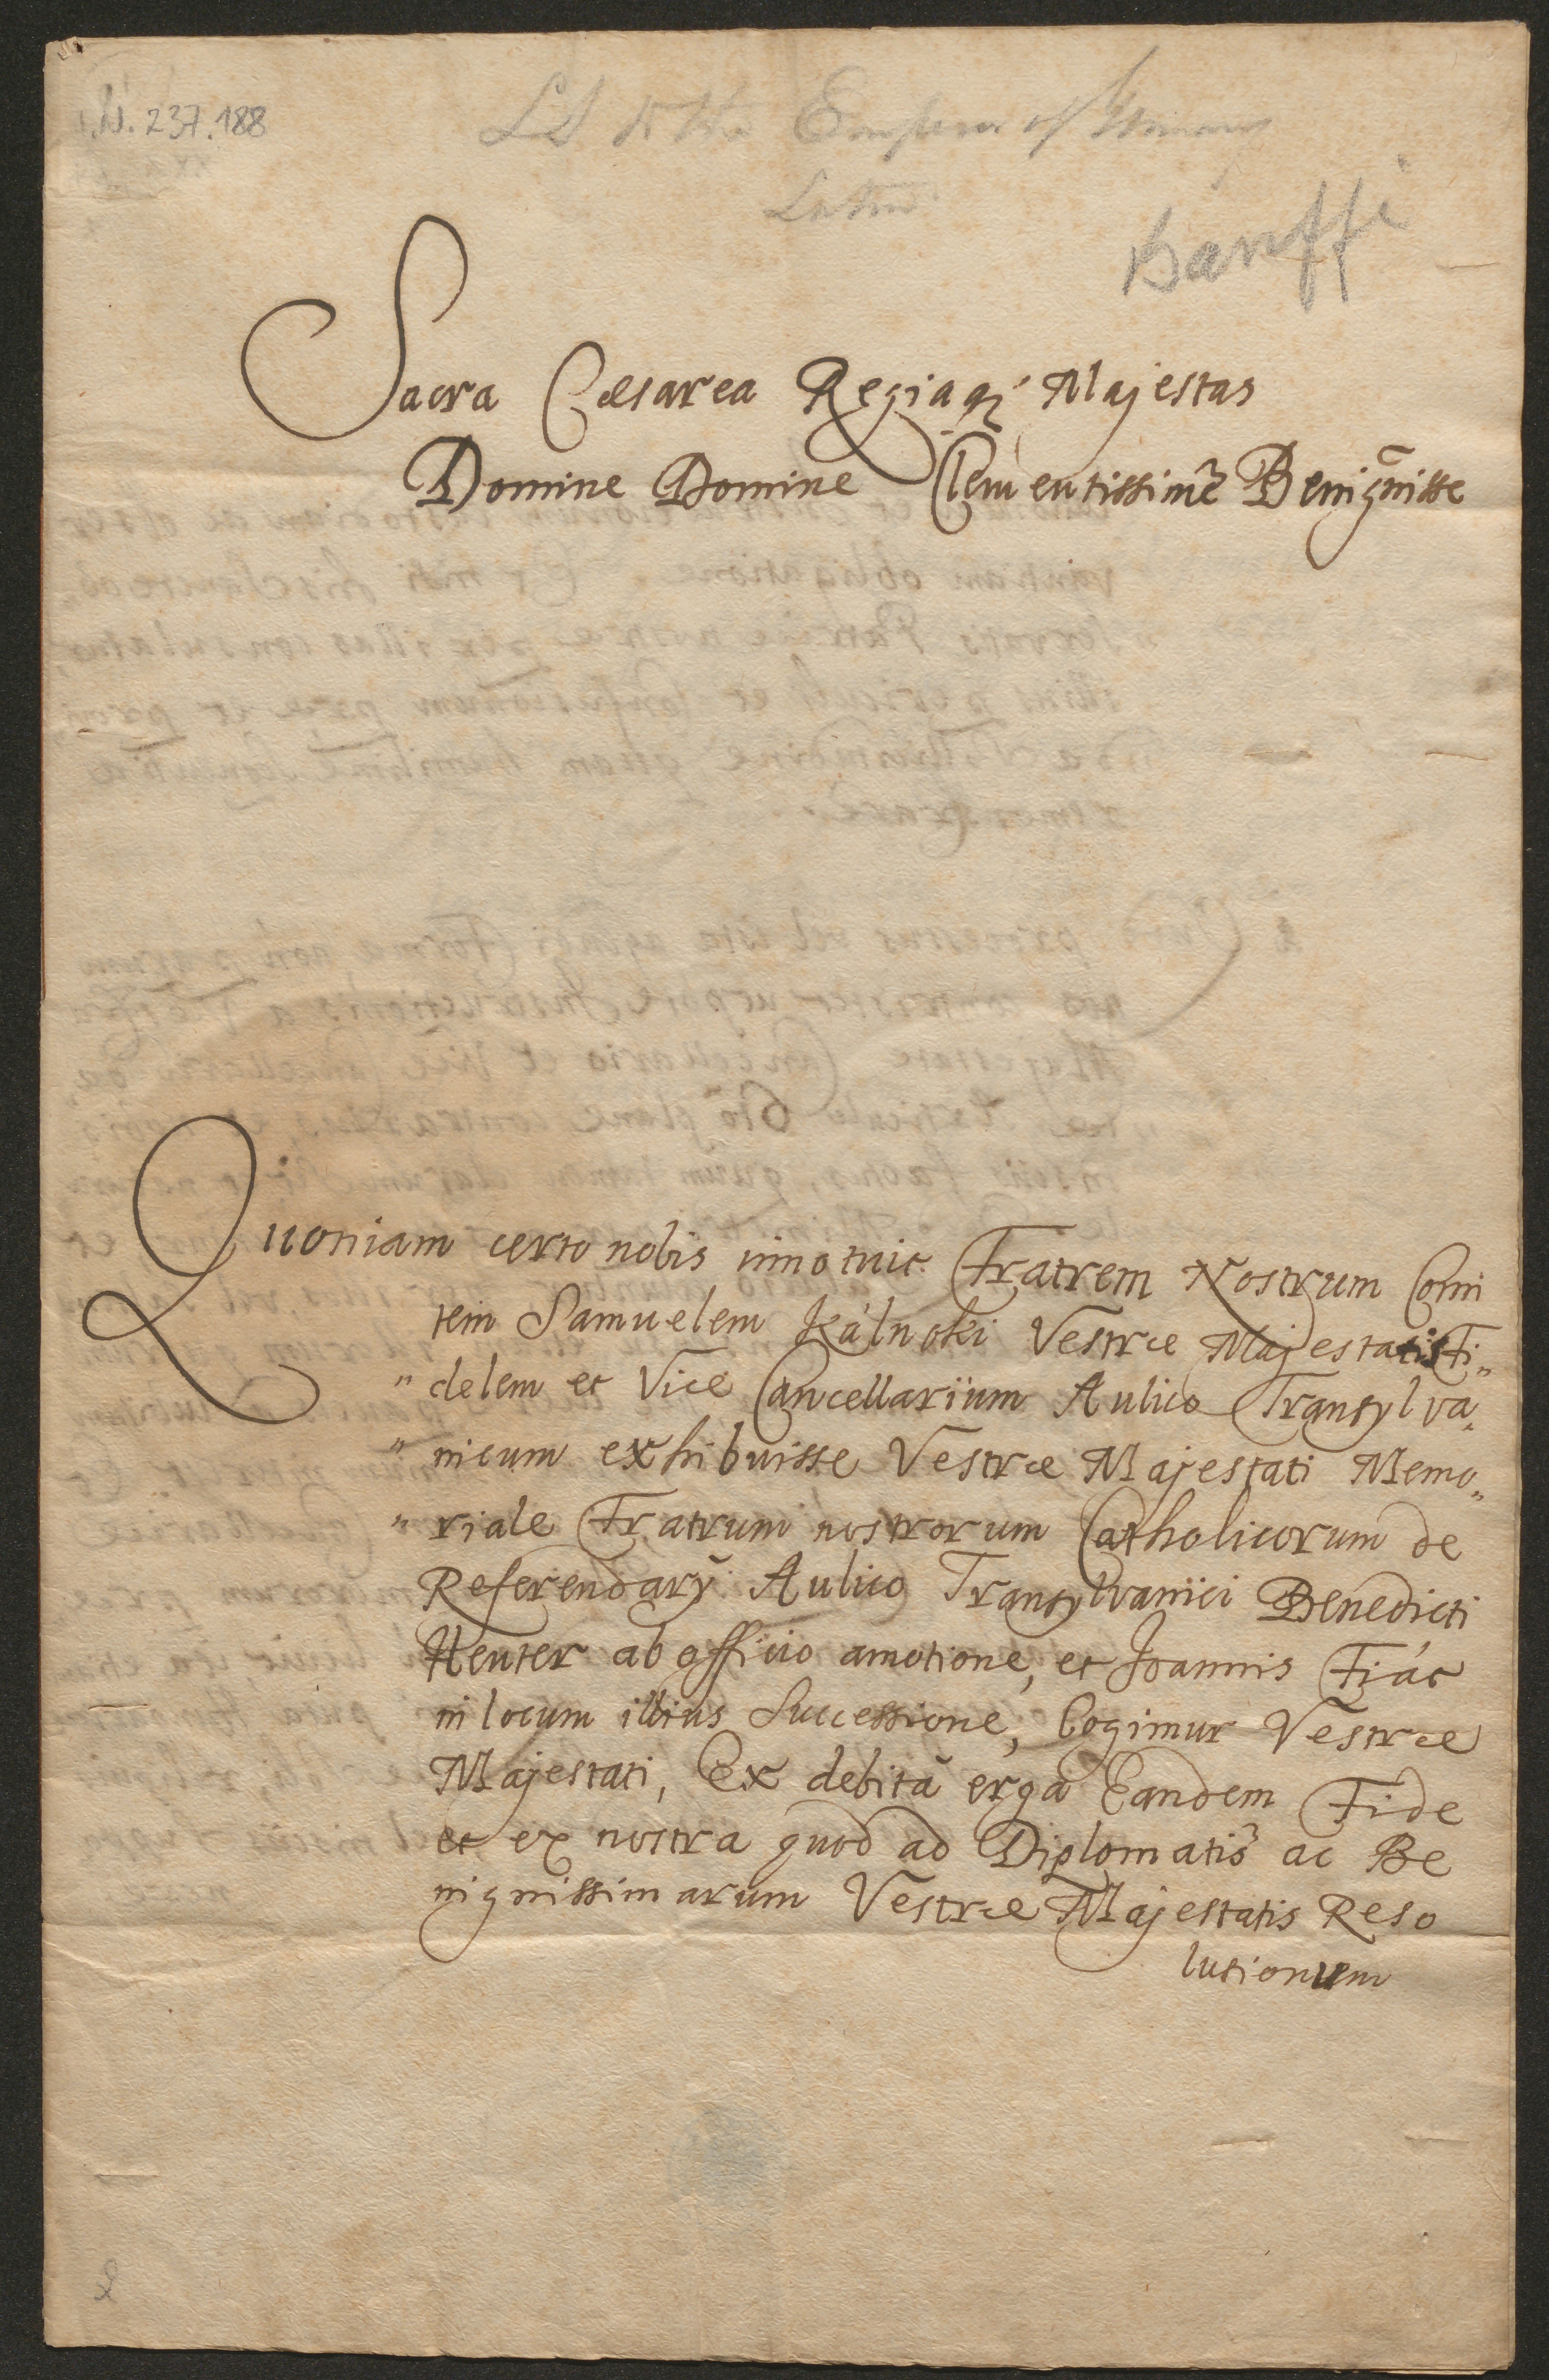 I.N. 237.188
LS to the Emperor of Germany
Latin
Banffi
Sacra Cæsarea Regiaq́; Majestas
Domine Domine Clementissimē Benigniss̄e
Quoniam certo nobis innotuit Fratrem Nostrum Comi
tem Samuelem Kálnoki Vestræ Majestatis Fi„
„delem et Vice Cancellarium Aulico Transylva„
„nicum exhibuisse Vestræ Majestati Memo„
„riale Fratrum nostrorum Catholicorum de
Referendarÿ Aulico Transylvanici Benedicti
Henter ab officio amotione, et Joannis Fiát
in locum illius Successione, Cogimur Vestræ
Majestati, Ex debitâ erga Eandem Fide
et ex nostra quod ad Diplomatis ac Be
nignissimarum Vestræ Majestatis Reso
lutionum
2